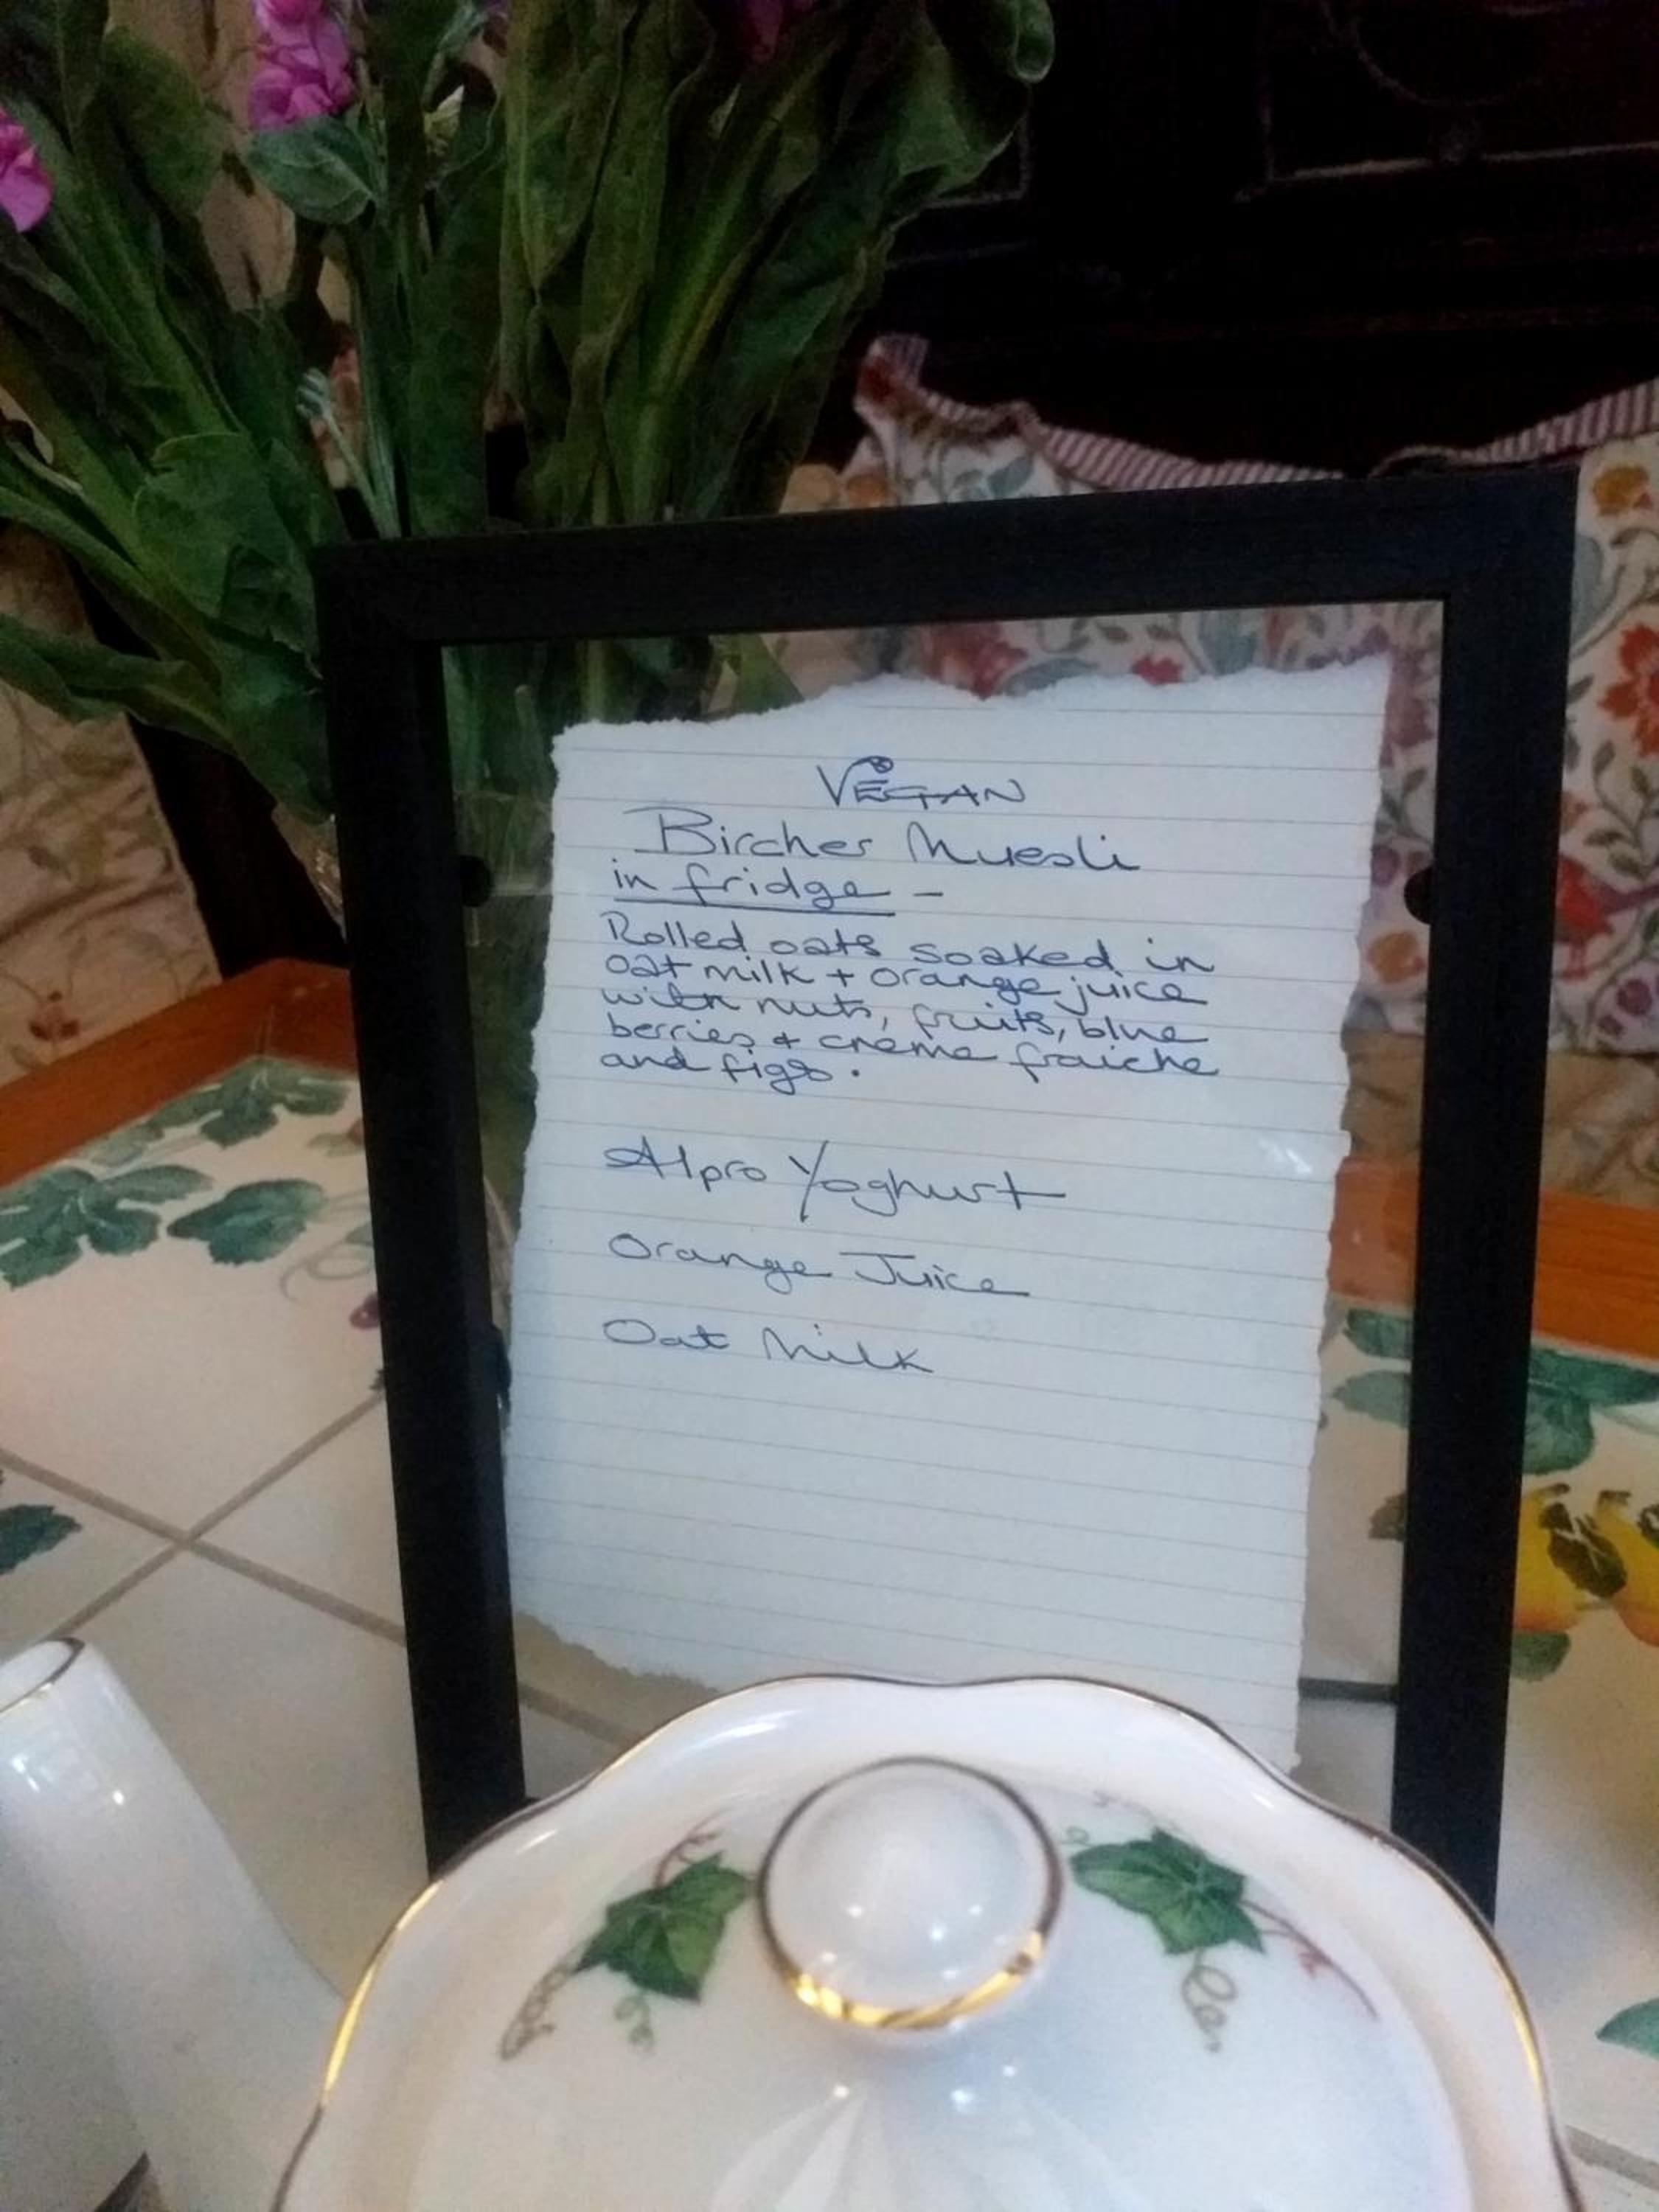 VEGAN
Bircher Muesli
in fridge -
Rolled oats soaked in
oat milk + orange juice
with nuts, fruits, blue
berries + creme fraiche
and figs.
Alpro Yoghurt
Orange Juice
Oat Milk